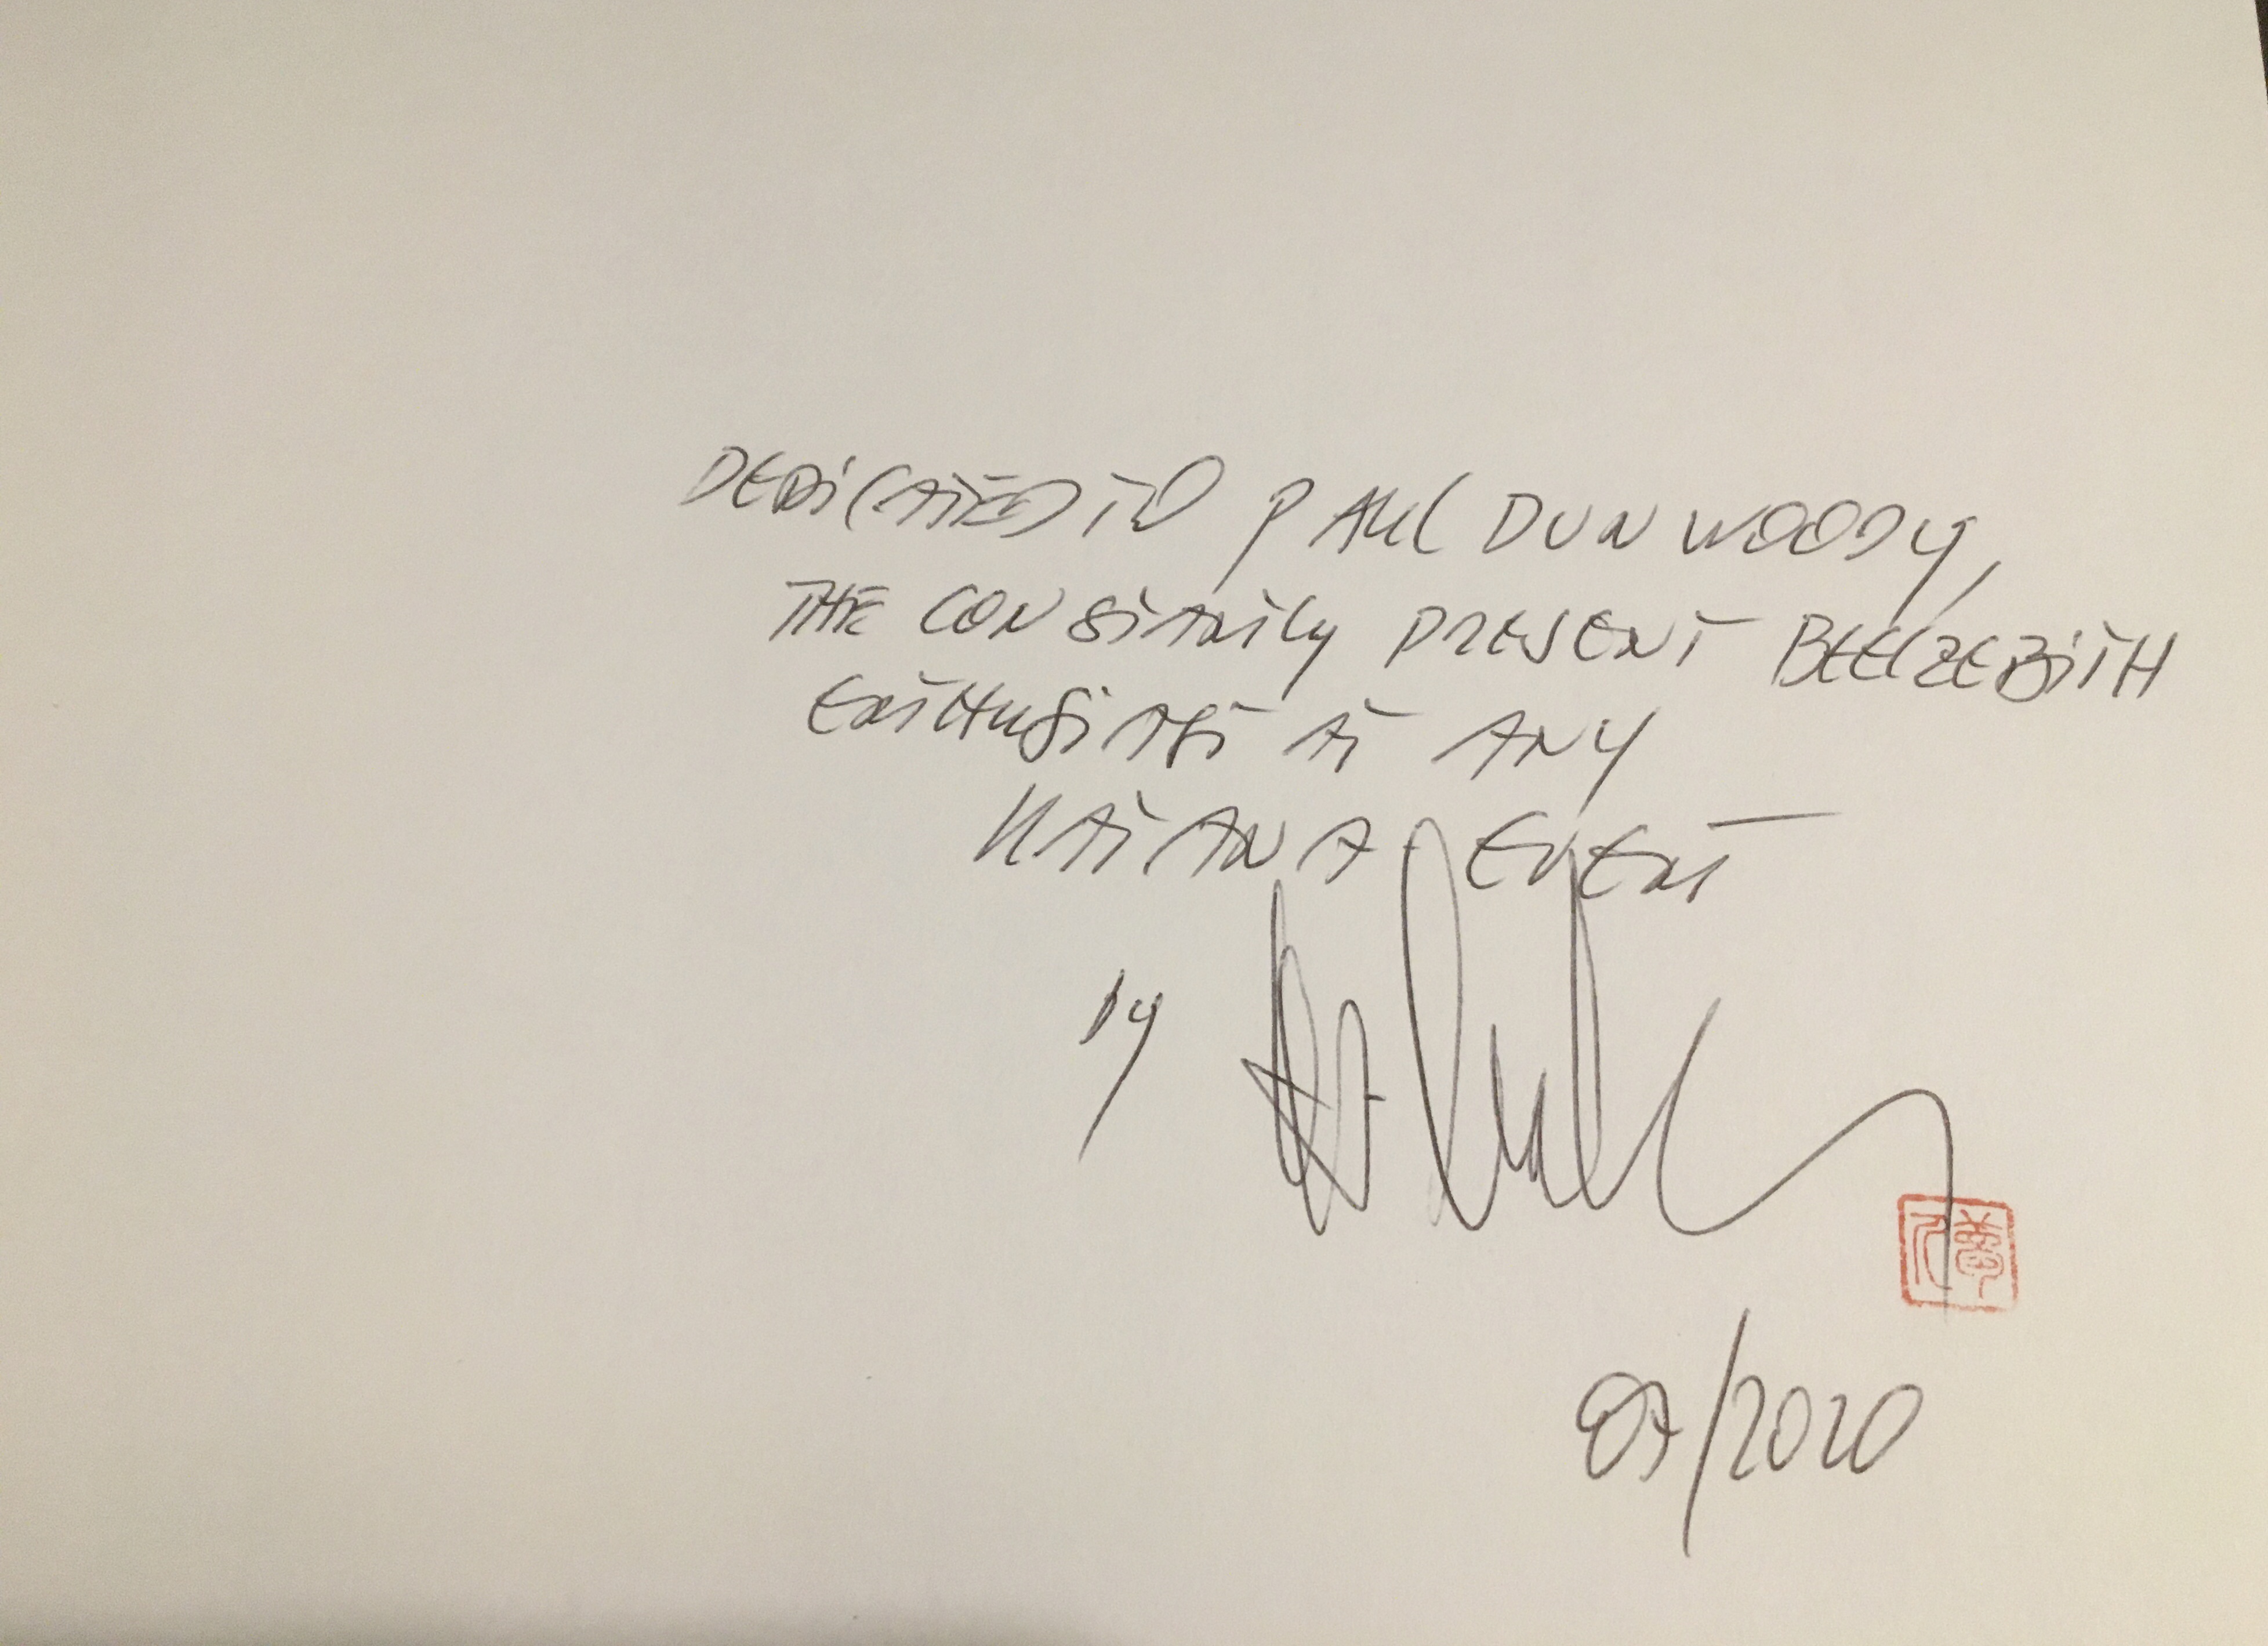 DEDICATED TO PAUL DUNWOODY,
THE CONSTANTLY PRESENT BEELZEBITH
ENTHUSIAST AT ANY
KATANA EVENT
by
/2020